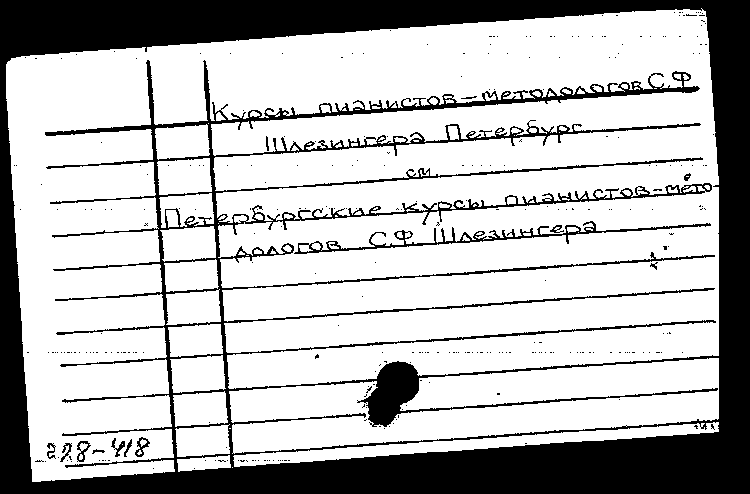 Курсы пианистов-методологов С.Ф
Шлезингера Петербург
см.
Петербургские курсы пианистов-мето-
дологов С.Ф. Шлезингера
228-418